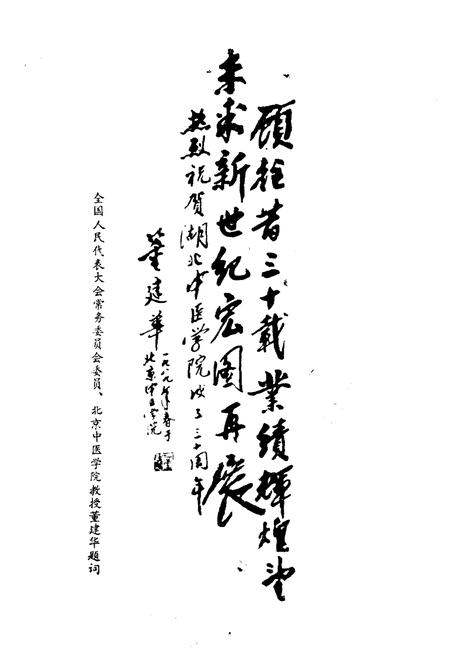 顾往昔三十載業績輝煌望
未来新世紀宏图再展
热烈祝贺湖北中医学院成立三十周年
董建華
一九八九年春于
北京中医学院
全国人民代表大会常务委员会委员、北京中医学院教授董建华题词